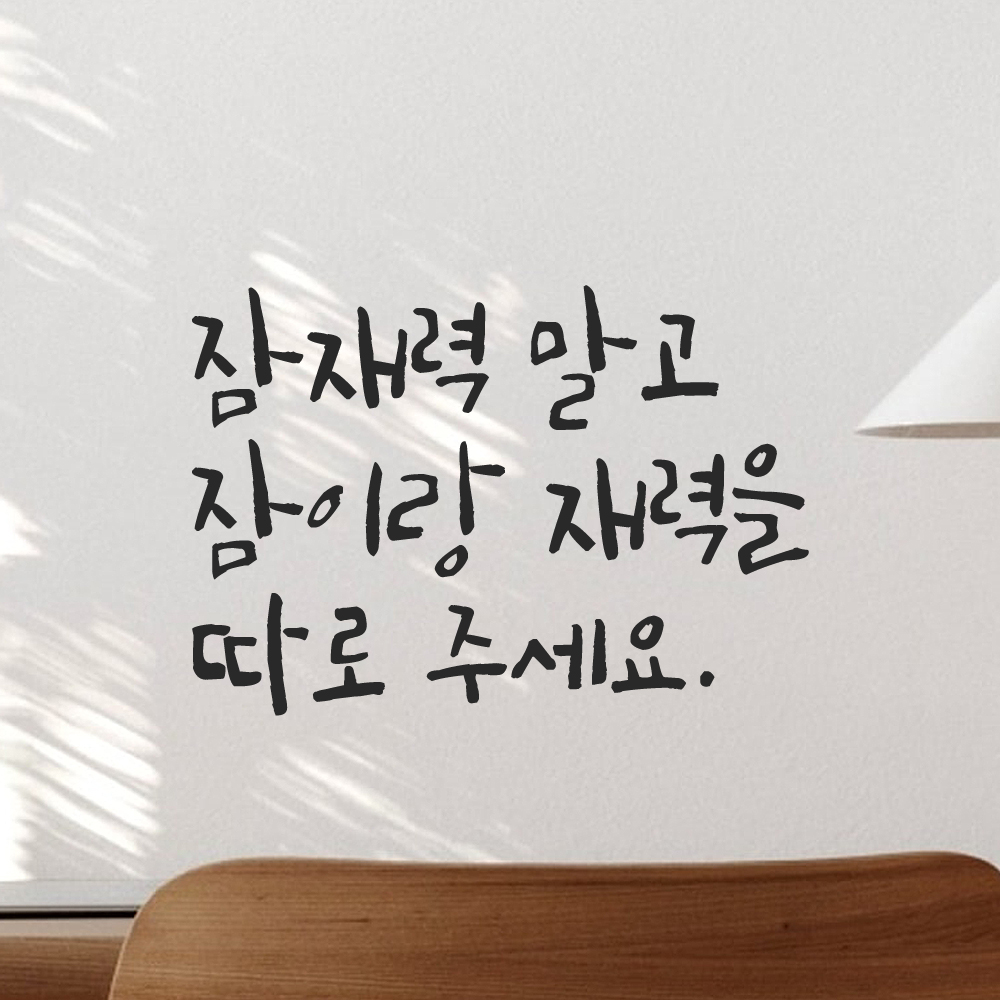 잠재력 말고
잠이랑 재력을
따로 주세요.